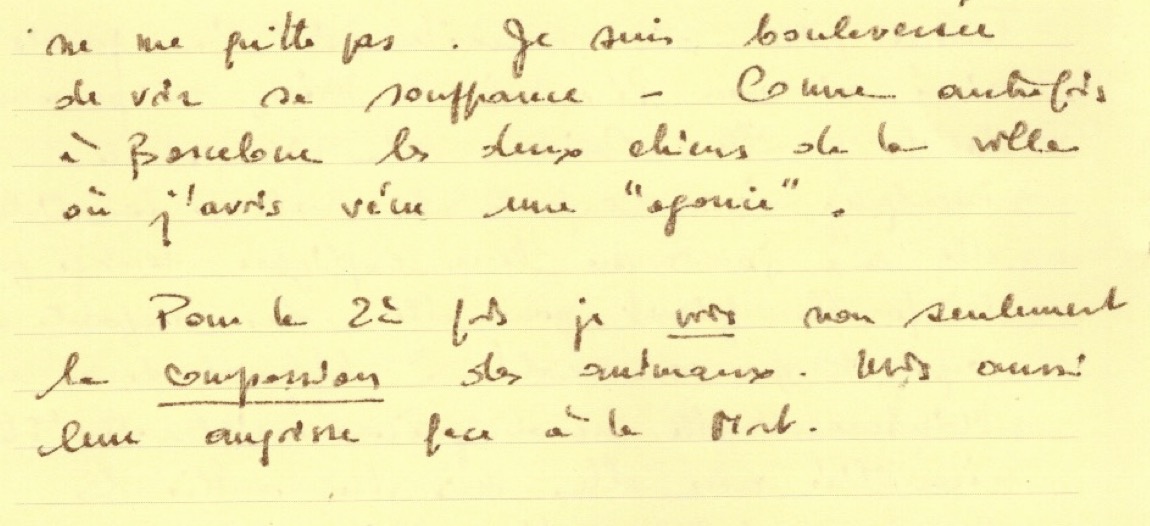 ne me quitte pas. Je suis bouleversée
de voir sa souffrance - Comme autrefois
à Barcelone les deux chiens de la ville
où j'avais vécu une "agonie".
Pour la 2è fois je vois non seulement
la compassion des animaux. Mais aussi
leur angoisse face à la Mort.